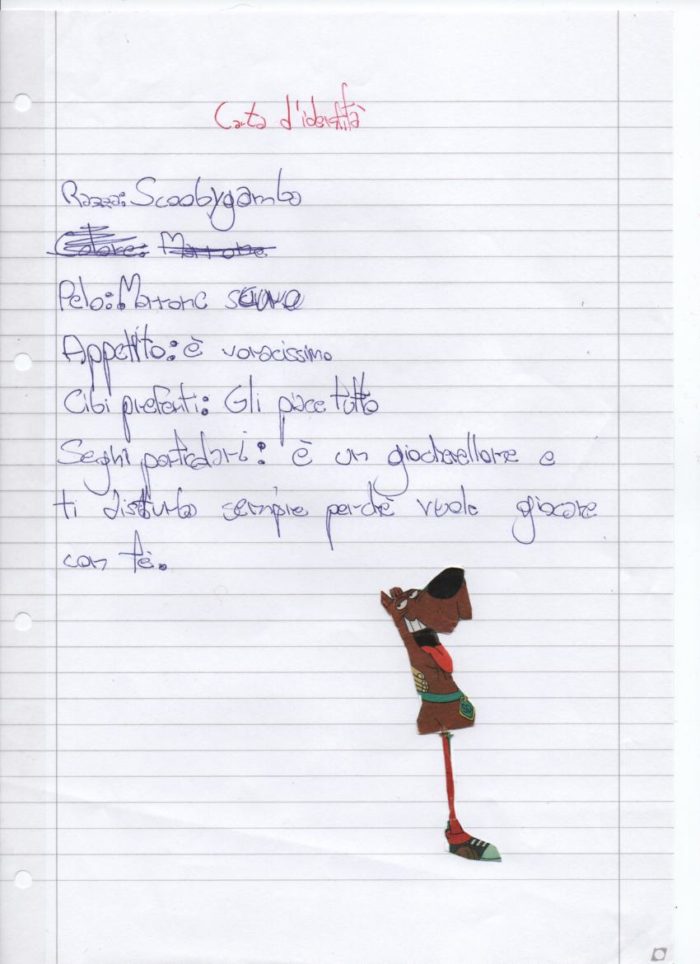 Carta d'identità
Razza: Scoobygamba
Colore: Marrone
Pelo: Marrone scuro
Appetito: è voracissimo
Cibi preferiti: Gli piace tutto
Seghi particolari: è un giocherellone e
ti disturba sempre perchè vuole giocare
con tè.